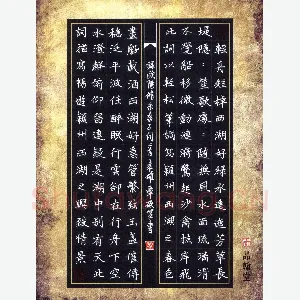 輕舟短棹西湖好綠水逶迤芳草長
堤隱〻笙歌處〻隨無風水面琉璃滑
不覺船移微動漣漪驚起沙禽掠岸飛
此詞以輕松筆調寫潁州西湖之春
畫船載酒西湖好急管繁弦玉盞催傳
穩泛平波任醉眠行雲卻在行舟下空
水澄鮮俯仰留連疑是湖中別有天此
詞描寫暢遊潁州西湖之興致情景